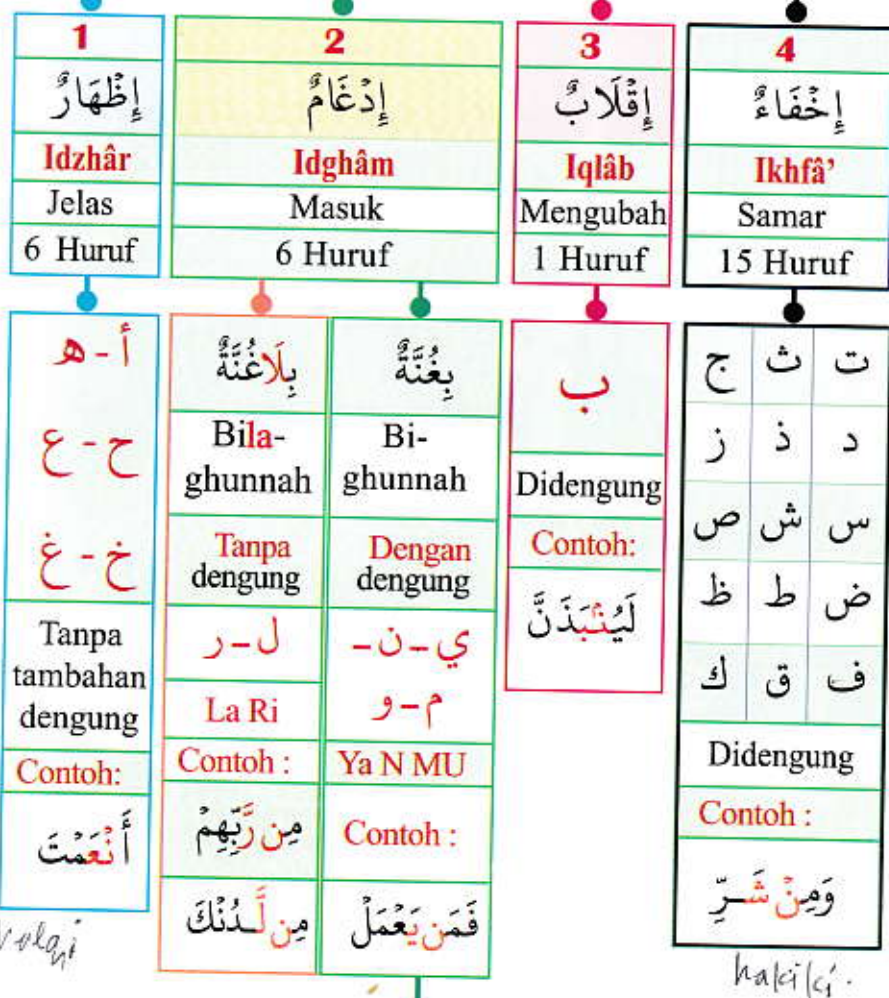 1
إِظْهَارٌ
Idzhâr
Jelas
6 Huruf
أ - ه
ح - ع
خ - غ
Tanpa
tambahan
dengung
Contoh:
أَنْعَمْتَ
2
إِدْغَامٌ
Idghâm
Masuk
6 Huruf
بِلَاغُنَّةٌ
Bila-
ghunnah
Tanpa
dengung
ل – ر
La Ri
Contoh :
مِن رَّبِّهِمْ
مِن لَّدُنْكَ
بِغُنَّةٌ
Bi-
ghunnah
Dengan
dengung
ي – ن –
م – و
Ya N MU
Contoh :
فَمَن يَعْمَلْ
3
إِقْلَابٌ
Iqlâb
Mengubah
1 Huruf
ب
Didengung
Contoh:
لَيُنْبَذَنَّ
4
إِخْفَاءٌ
Ikhfâ’
Samar
15 Huruf
ت ث ج
د ذ ز
س ش ص
ض ط ظ
ف ق ك
Didengung
Contoh :
وَمِنْ شَرِّ
hakiki.